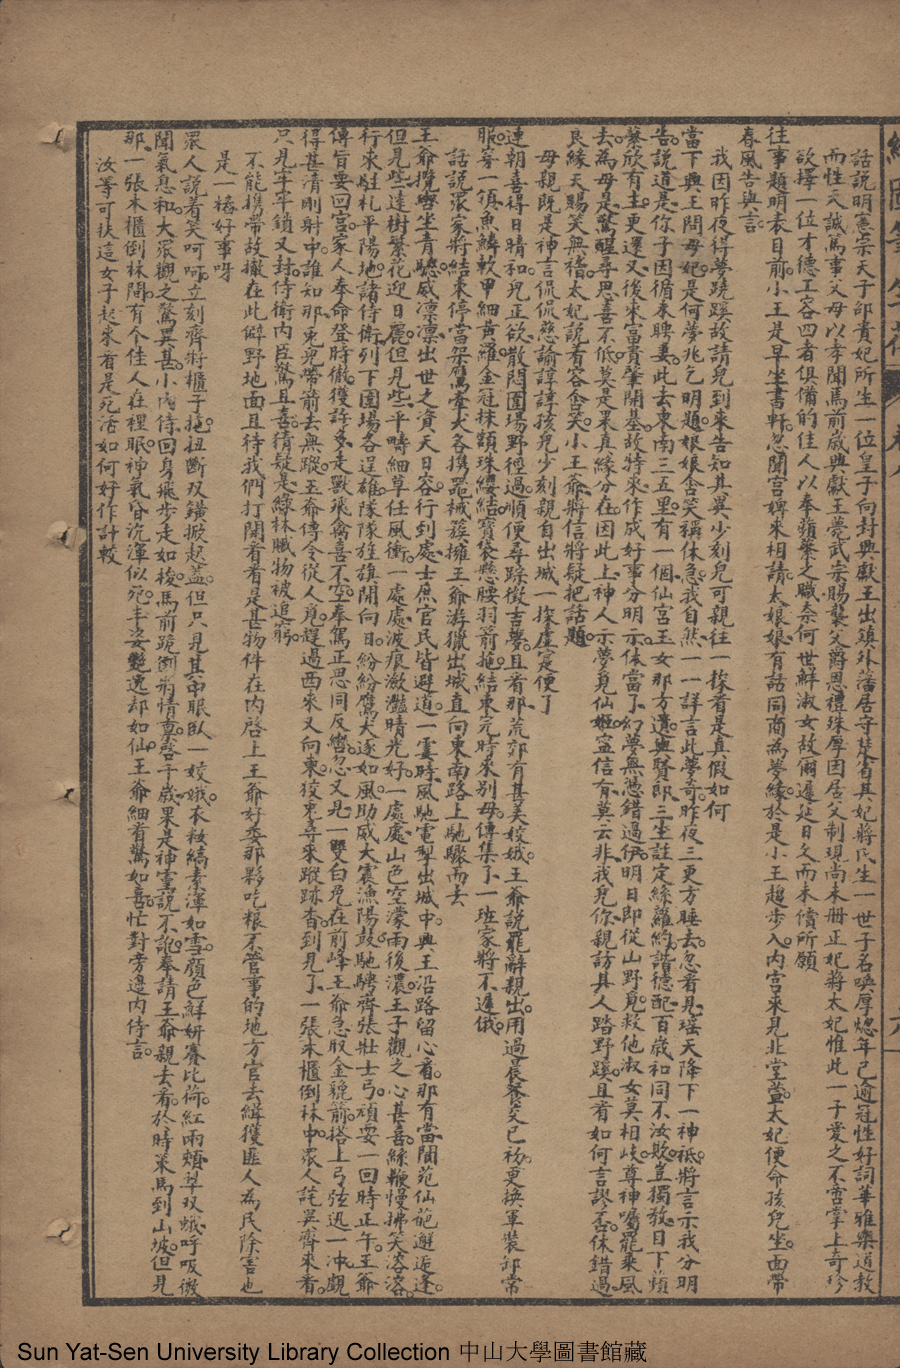 話說明憲宗天子邵貴妃所生一位皇子向封興獻王出鎮外藩居守楚省其妃蔣氏生一世子名喚厚熜年已逾冠性好詞華雅樂道教
而性天誠篤事父母以孝聞焉前歲興獻王薨武宗賜襲父爵恩禮殊厚因居父制現尚未册正妃蔣太妃惟此一子愛之不啻掌上奇珍
欲擇一位才德工容四者俱備的佳人以奉蘋蘩之職奈何世鮮淑女故爾遲延日久而未償所願
往事題明表日前小王是早坐書軒忽聞宮婢來相請太娘娘有話同商為夢緣於是小王趨步入內宮來見北堂萱太妃便命孩兒坐面帶
春風告與言
我因昨夜得夢蹺蹊故請兒到來告知其異少刻兒可親往一探看是真假如何
當下興王問母妃是何夢兆乞明題娘娘含笑稱休急我自然一一詳言此夢奇昨夜三更方睡去忽看見瑤天降下一神祇將言示我分明
告說道是你子因循未聘妻此去東南三五里有一個仙宮玉女那方遺與賢郎三生註定絲蘿約諧德配百歲和同不汝欺豈獨救日下蘋
蘩欣有主更還又後來富貴肇開基故特來作成好事分明示休當了幻夢無憑錯過伊明日即從山野覓救他淑女莫相歧尊神囑罷乘風
去為母是驚醒尋思喜不低莫是果真緣分在因此上神人示夢覓仙姬宜信有莫云非我兒你親訪其人路野蹊且看如何言謬否休錯過
良緣天賜笑無稽太妃說着容含笑小王爺將信將疑把話題
母親既是神言侃侃慈諭諄諄孩兒少刻親自出城一探虛寔便了
連朝喜得日晴和兒正欲散悶圍場野徑過順便尋踪徵吉夢且看那荒郊有甚美姣娥王爺說罷辭親出用過晨餐交已初更換軍裝卸常
服穿一領魚鱗軟甲細黃羅金冠抹額珠纓結寶袋懸腰羽箭拖結束完時來別母傳集了一班家將不遲俄
話說眾家將結束停當架鷹牽犬各攜器械簇擁王爺游獵出城直向東南路上馳驟而去
王爺攬轡坐青驄威凛凛出世之資天日容行到處士庶官民皆避道一霎時風馳電掣出城中興王沿路留心看那有當閬苑仙葩邂逅逢
但見些達樹繁花迎日麗但見些平疇細草任風衝一處處波痕瀲灩晴光好一處處山色空濛雨後濃王子觀之心甚喜絲鞭慢拂笑溶溶
行來駐札平陽地諸侍衛列下圍場各逞雄隊隊旌旗開向日紛紛鷹犬逐如風助威大震漁陽鼓馳騁齊張壯士弓頑耍一回時正午王爺
傳旨要回宮家人奉命登時徹獲許多走獸飛禽喜不空奉駕正思同反轡忽又見一雙白兔在前峰王爺急取金貔箭搭上弓弦迅一冲觀
得甚清剛射中誰知那兔兒帶箭去無蹤王爺傳令從人覓趕過西來又向東狡兔尋來蹤跡杳到見了一張木櫃倒林中眾人詫異齊來看
只見牢牢鎖又封侍衛內臣驚且喜猜疑是綠林贓物被追窮
不能携帶故撇在此僻野地面且待我們打開看看是甚物件在內啓上王爺好委那夥吃粮不管事的地方官去緝獲匪人為民除害也
是一樁好事呀
眾人說着笑呵呵立刻齊將櫃子拖扭斷双鐄掀起蓋但只見其中眠臥一姣娥衣粧縞素渾如雪顏色鮮妍賽比荷紅雨頰翠双蛾呼吸微
聞氣息和大眾觀之驚異甚小內侍回身飛步走如梭馬前跪倒將情稟啓千歲果是神靈說不訛奉請王爺親去看於時策馬到山坡但見
那一張木櫃倒林間有个佳人在裡眠神氣昏沉渾似死丰姿艷逸却如仙王爺細看驚如喜忙對旁邊內侍言
汝等可扶這女子起來看是死活如何好作計較
Sun Yat-Sen University Library Collection 中山大學圖書館藏